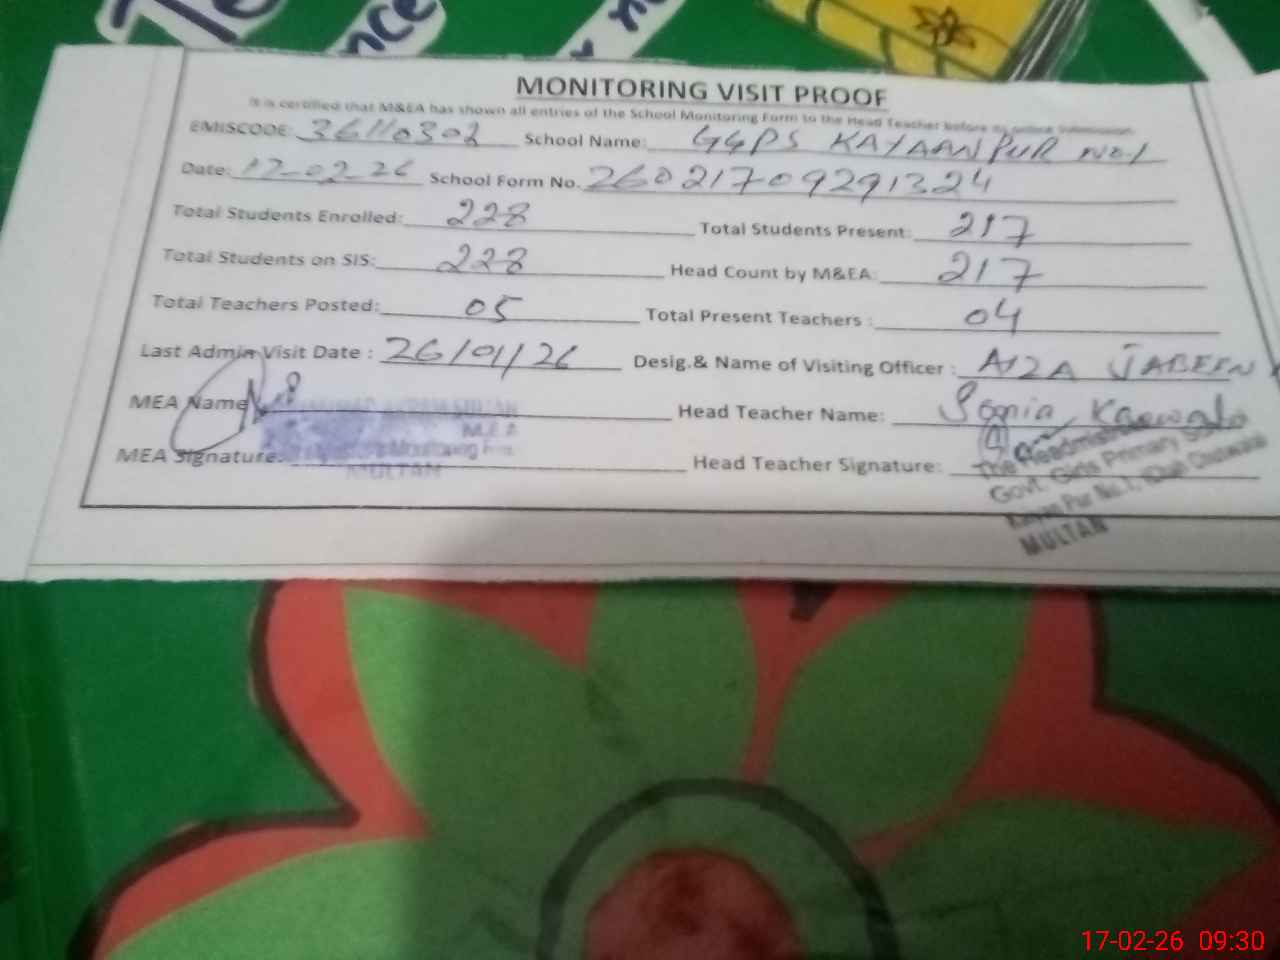 nce
MONITORING VISIT PROOF
It is certified that M&EA has shown all entries of the School Monitoring Form to the Head Teacher before its online submission.
EMISCODE: 36110302 School Name: GGPS KAYAANPUR NO.1
Date: 17-02-26 School Form No. 26021709291324
Total Students Enrolled: 228 Total Students Present: 217
Total Students on SIS: 228 Head Count by M&EA: 217
Total Teachers Posted: 05 Total Present Teachers : 04
Last Admin Visit Date : 26/01/26 Desig.& Name of Visiting Officer : AIZA JABEEN
MEA Name Head Teacher Name: Sonia
M.E.A
Monitoring
MEA Signature: Head Teacher Signature:
MULTAN
The Headmistress
Govt. Girls Primary School
Pur No.1,
MULTAN
17-02-26 09:30